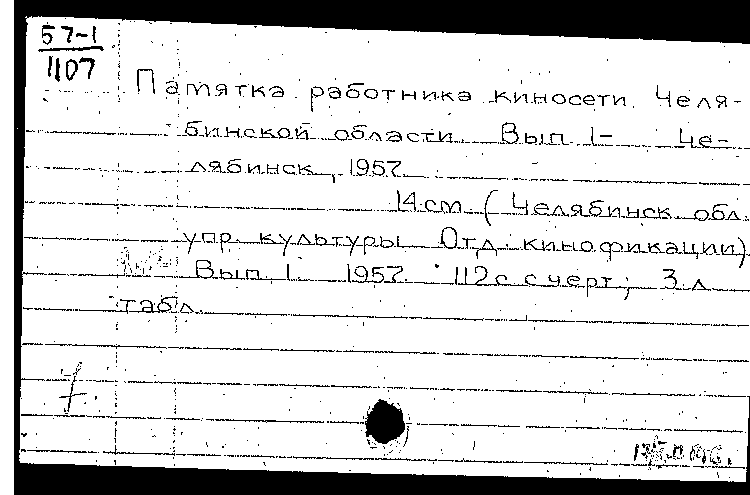 57-1
1107
Памятка работника киносети Челя-
бинской области. Вып 1- Че-
лябинск, 1957.
14 см. (Челябинск. обл.
упр. культуры Отд. кинофикации)
Вып. 1. 1957. 112 с с черт; 3 л
табл.